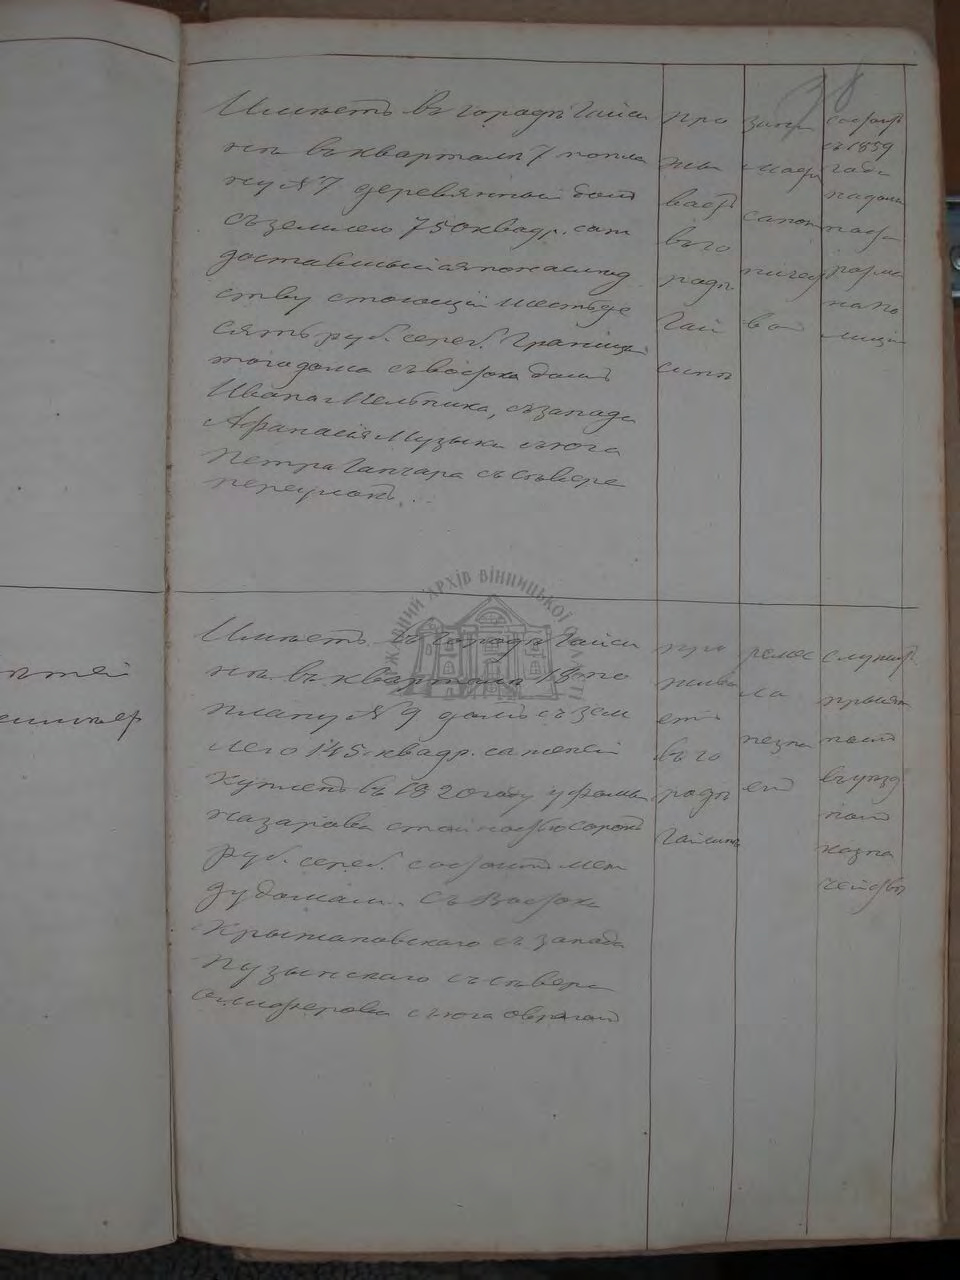 38
Имѣетъ въ городѣ Гайси
нѣ въ кварталѣ 7 по пла
ну № 7 деревянный домъ
съ землею 750 квадр. саж
доставшійся по наслѣд
ству стоющій шестьде
сятъ руб. сереб. Границы
того дома съ востока домъ
Ивана Мельника, съ запада
Афанасія Музыки съ юга
Петра Ганчара съ сѣвера
переулокъ.
про
жи
ваетъ
въ го
родѣ
Гай
синѣ
зани
сапож
ничес
вой
состоитъ
съ 1859
года
ДЕРЖАВНИЙ АРХІВ ВІННИЦЬКОЇ ОБЛАСТІ
Имѣетъ въ городѣ Гайси
нѣ въ кварталѣ 18 по
плану № 9 домъ съ зем
лею 145 квадр. саженей
купленъ въ 1820 году у Фомы
Назарова стоимостью сорокъ
руб. сереб. состоитъ меж
ду домами. съ Востока
Крыжановскаго съ запада
Пузынскаго съ сѣвера
съ юга оврагомъ
про
жива
етъ
въ го
родѣ
Гайсинѣ
ремес
ла
незна
етъ
служит
въ уѣзд
номъ
казна
чействѣ